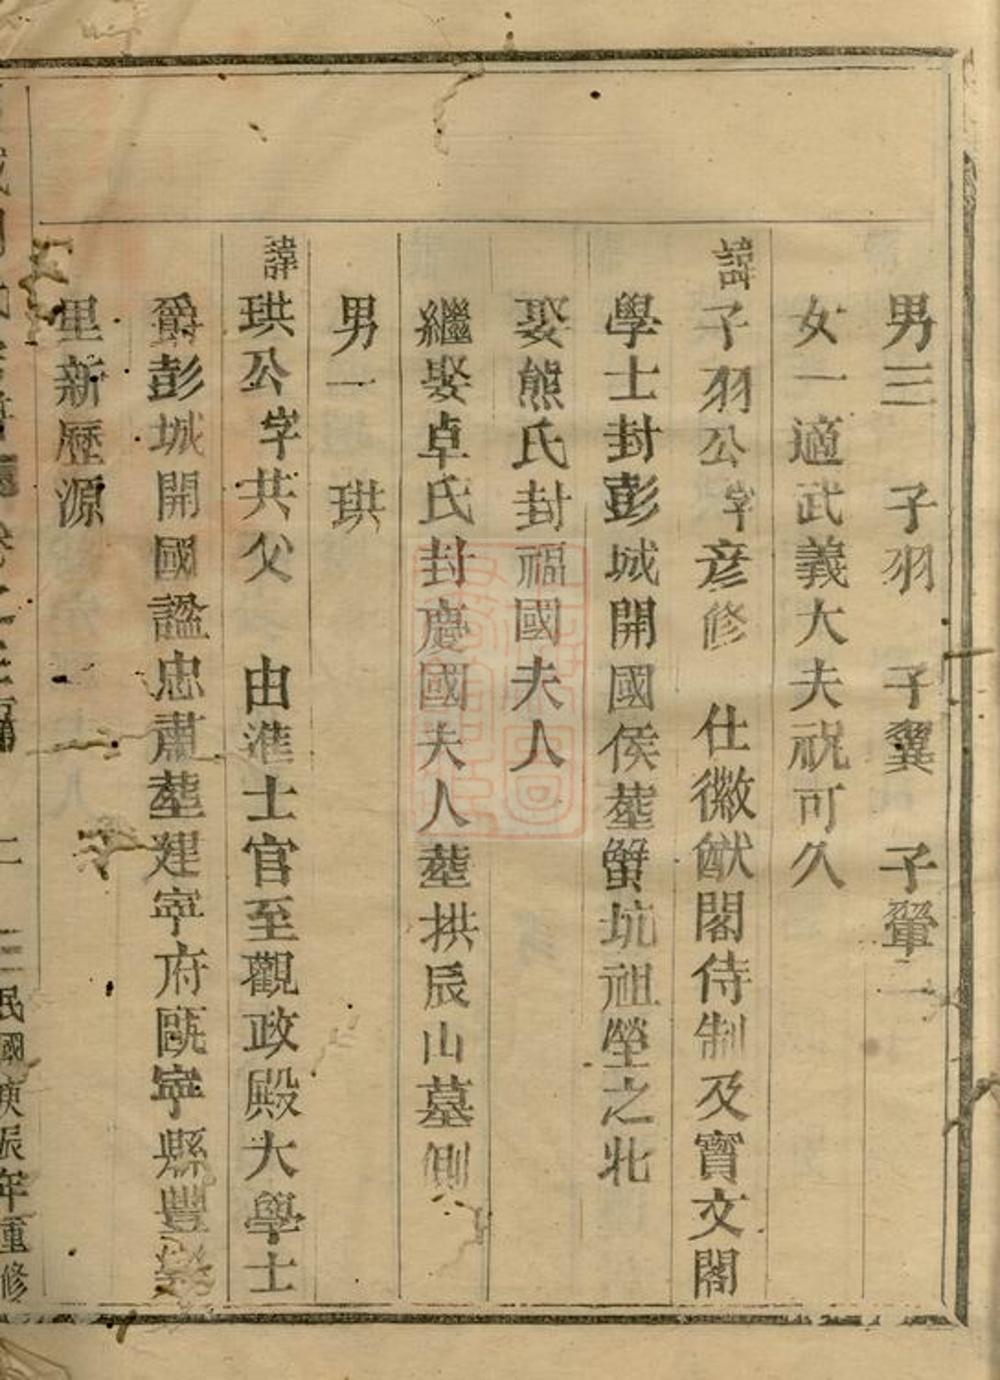 男三　子羽　子翼　子翬
女一適武義大夫祝可久
諱子羽公字彥修　仕徽猷閣侍制及寶文閣
學士封彭城開國侯塟蟹坑祖塋之北
娶熊氏封福國夫人
繼娶卓氏封慶國夫人塟拱辰山墓側
男一　珙
諱珙公字共父　由進士官至觀政殿大學士
爵彭城開國謚忠肅塟建寧府甌寧縣豐樂
里新歷源
民國庚辰年重修